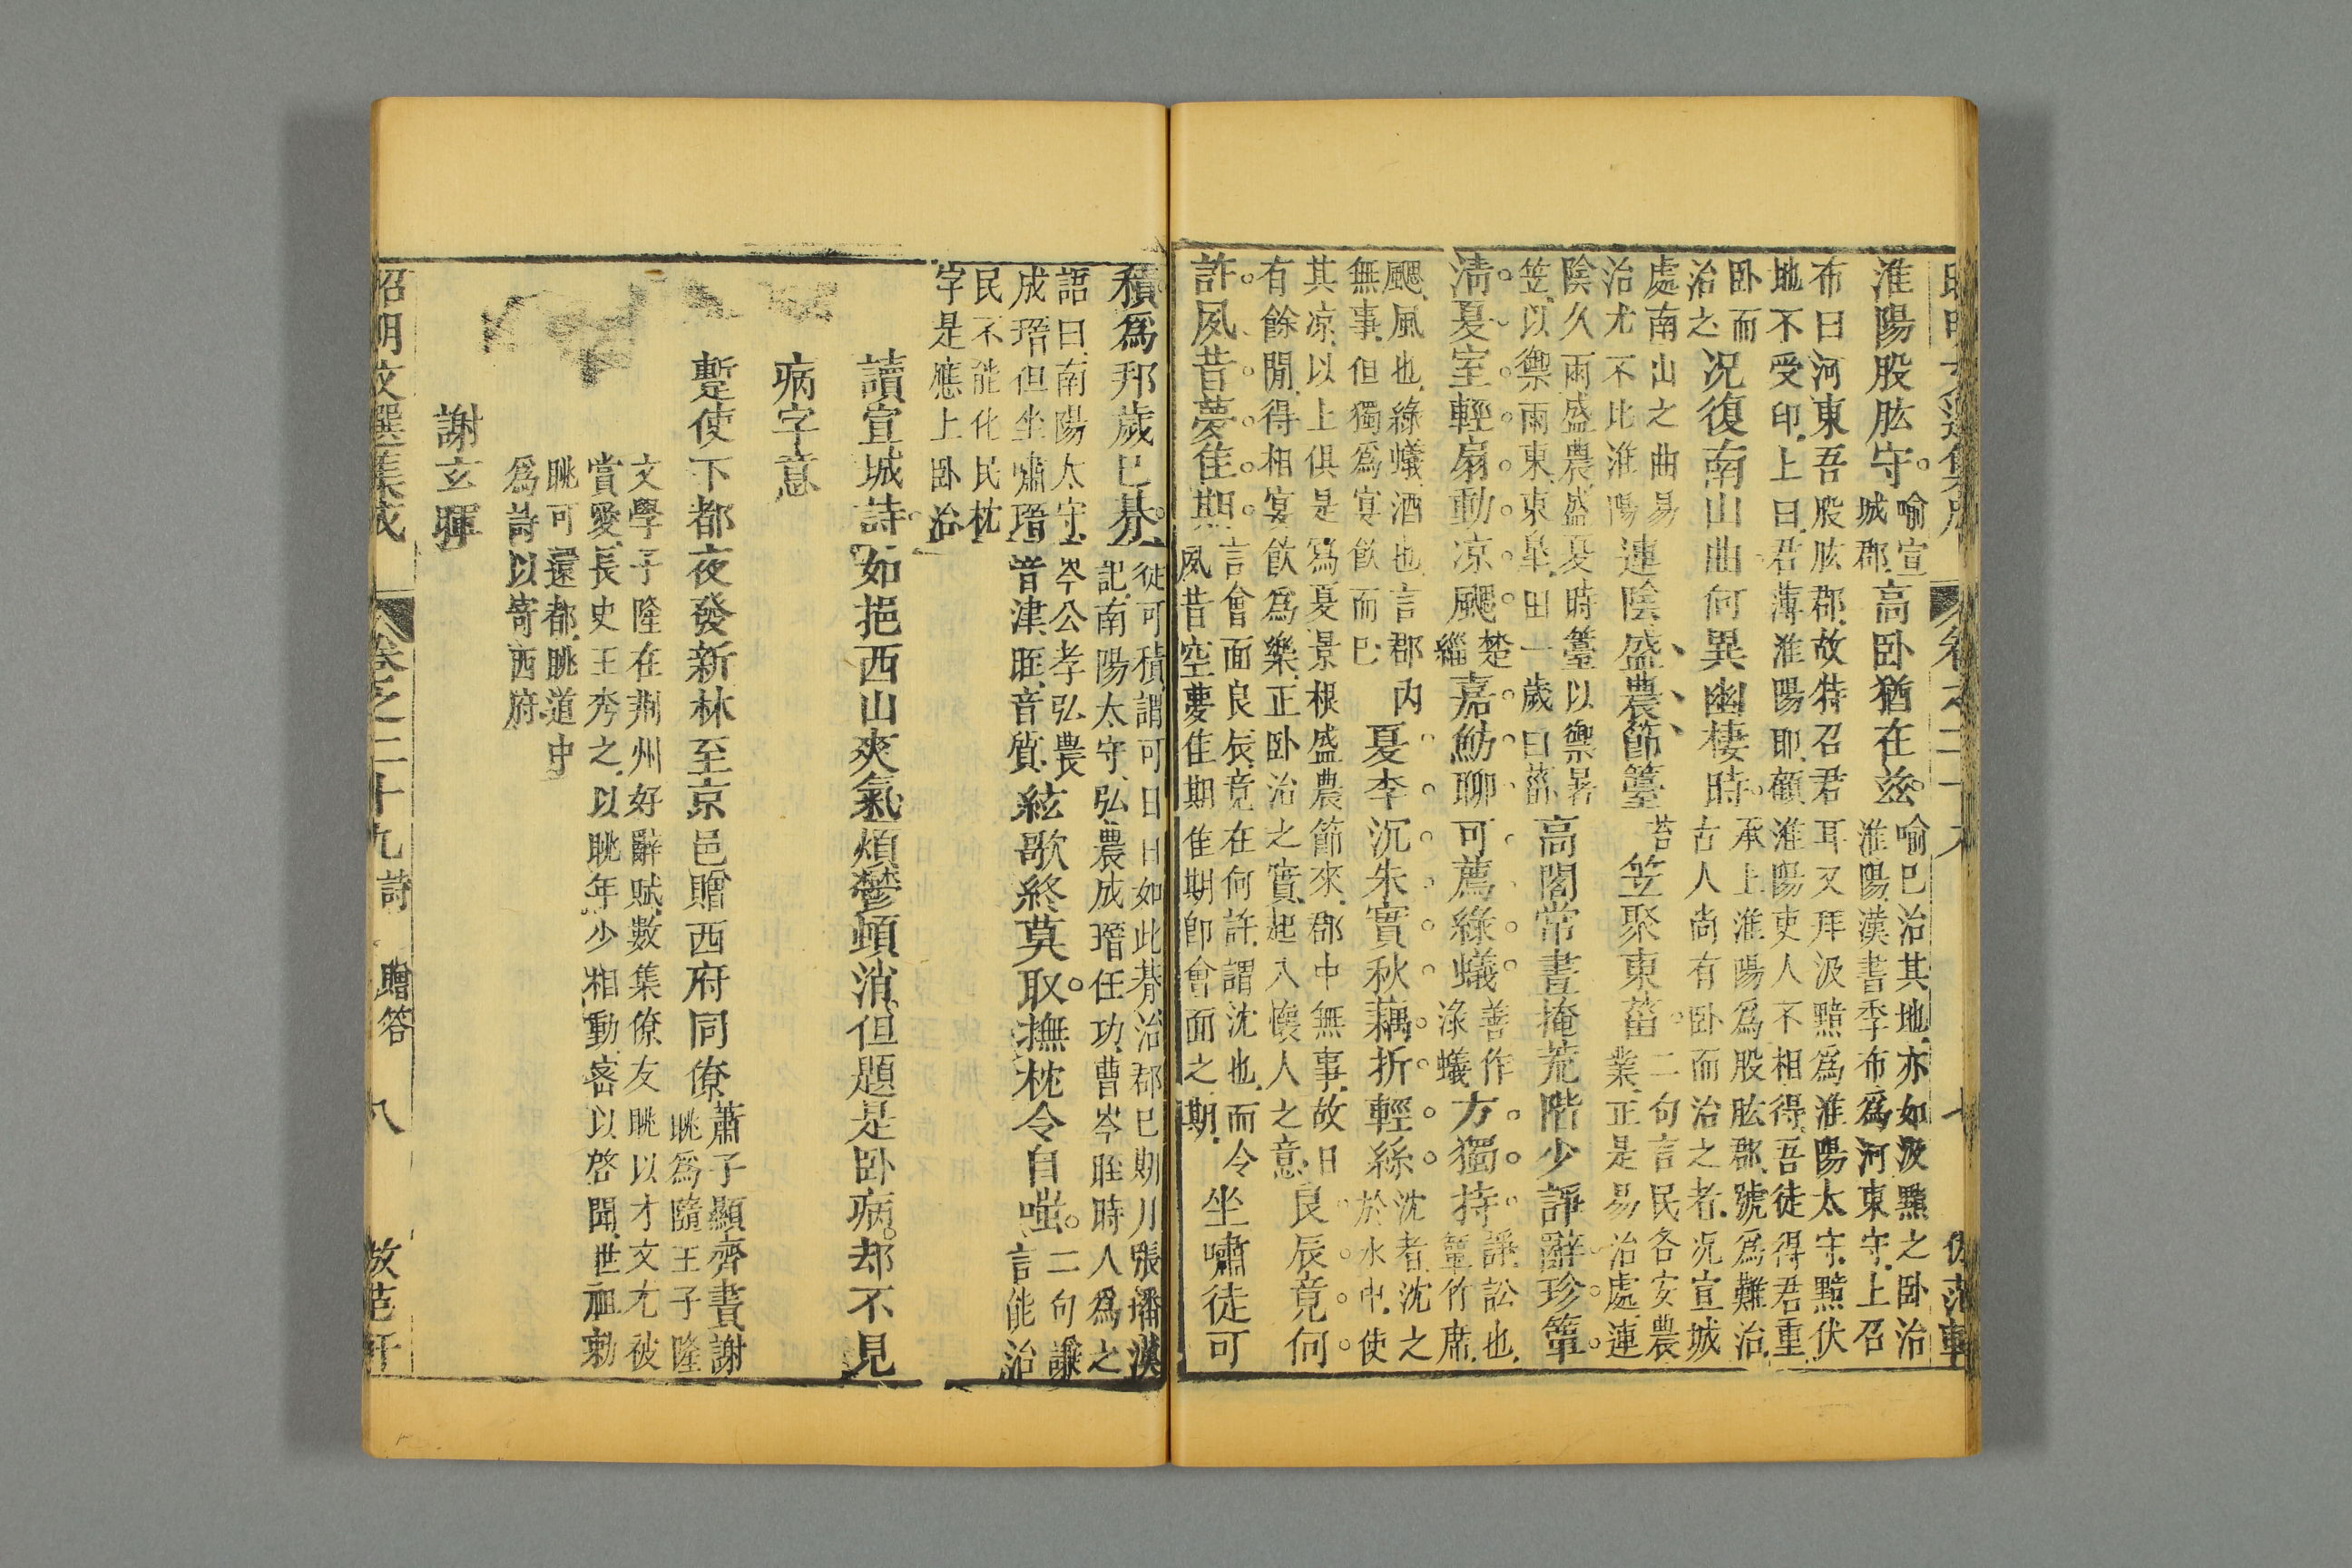 淮陽股肱守喻宣城郡高卧猶在兹喻巳治其地亦如汲黯之卧治淮陽漢書季布為河東守上召
布曰河東吾股肱郡故特召君耳又拜汲黯為淮陽太守黯伏地不受印上曰君薄淮陽耶顧淮陽吏人不相得吾徒得君重
卧而治之况復南山曲何異幽棲時承上淮陽為股肱郡號為難治古人尚有卧而治之者况宣城
處南山之曲易治尤不比淮陽連陰盛農節籉苔笠聚東菑二句言民各安農業正是易治處連
陰久雨盛農盛夏時籉以禦暑笠以禦雨東東皐田一歲曰菑高閣常晝掩荒階少諍辭珍簟
清夏室輕扇動凉颸楚緇嘉魴聊可薦綠蟻善作淥蟻方獨持諍訟也簟竹席
颸風也綠蟻酒也言郡内無事但獨為宴飲而巳夏李沉朱實秋藕折輕絲沈者沈之於水中使
其凉以上俱是寫夏景根盛農節來郡中無事故日有餘閒得相宴飲為樂正卧治之實起入懷人之意良辰竟何
許夙昔夢隹期言會面良辰竟在何許謂沈也而令夙昔空夢隹期隹期卽會面之期坐嘯徒可
積為邦歲巳朞從可積謂可日日如此朞治郡巳期川張璠漢記南陽太守弘農成瑨任功曹岑晊時人為之
語曰南陽太守岑公孝弘農成瑨但坐嘯瑨音津晊音質絃歌終莫取撫枕令自嗤二句謙言能治
民不能化民枕字是應上卧治
讀宣城詩如挹西山爽氣煩鬱頓消但題是卧病却不見
病字意
蹔使下都夜發新林至京邑贈西府同僚蕭子顯齊書謝眺為隨王子隆
文學子隆在荆州好辭賦數集僚友眺以才文尤被賞愛長史王秀之以眺年少相動密以啓聞世祖勅
眺可還都眺道中為詩以寄西府
謝玄暉
昭明文選集成 卷之二十九 詩 贈答 八 倣范軒